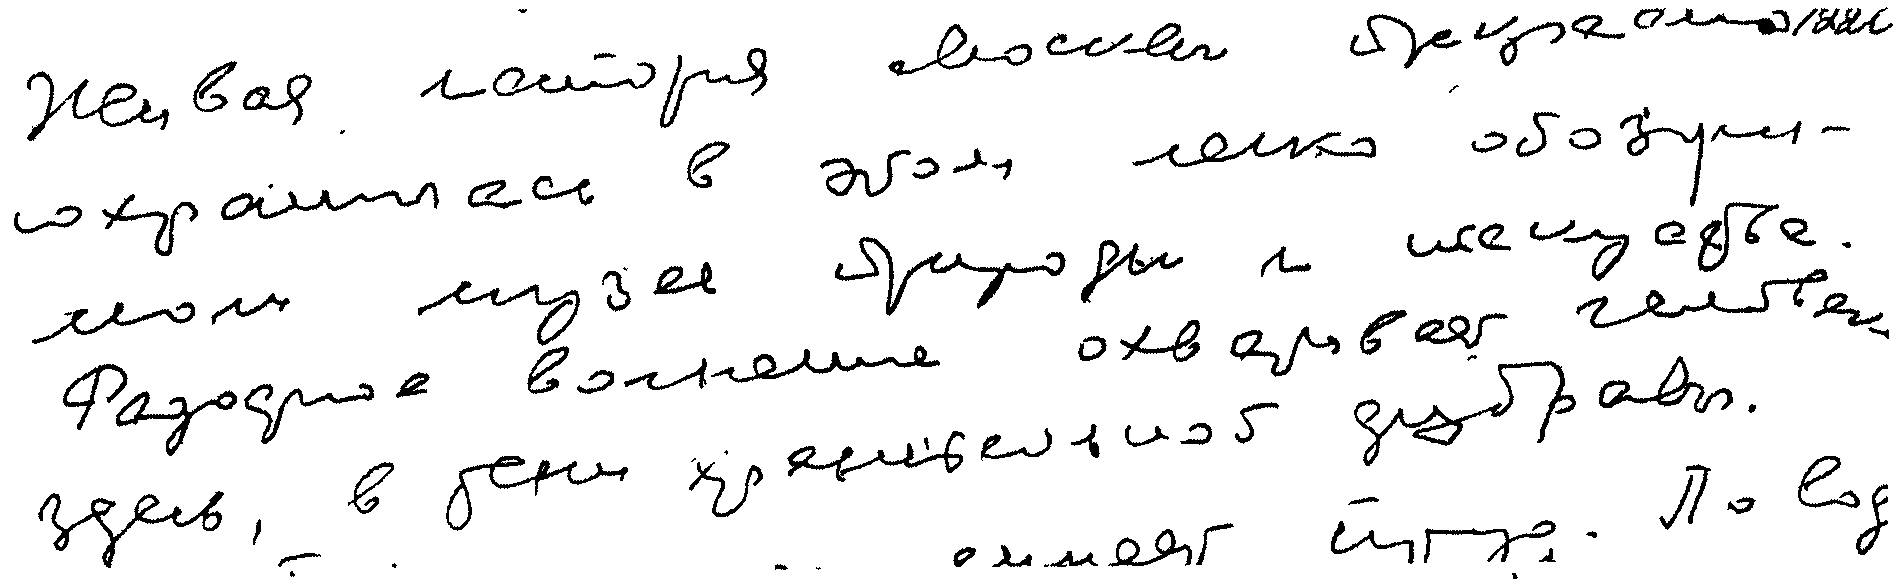 Живая история Москвы прекрасно
сохранилась в этом легко обозри-
мом музее природы и искусства.
Радостное волнение охватывает человека
здесь, в тени хранительной дубравы.
По вод